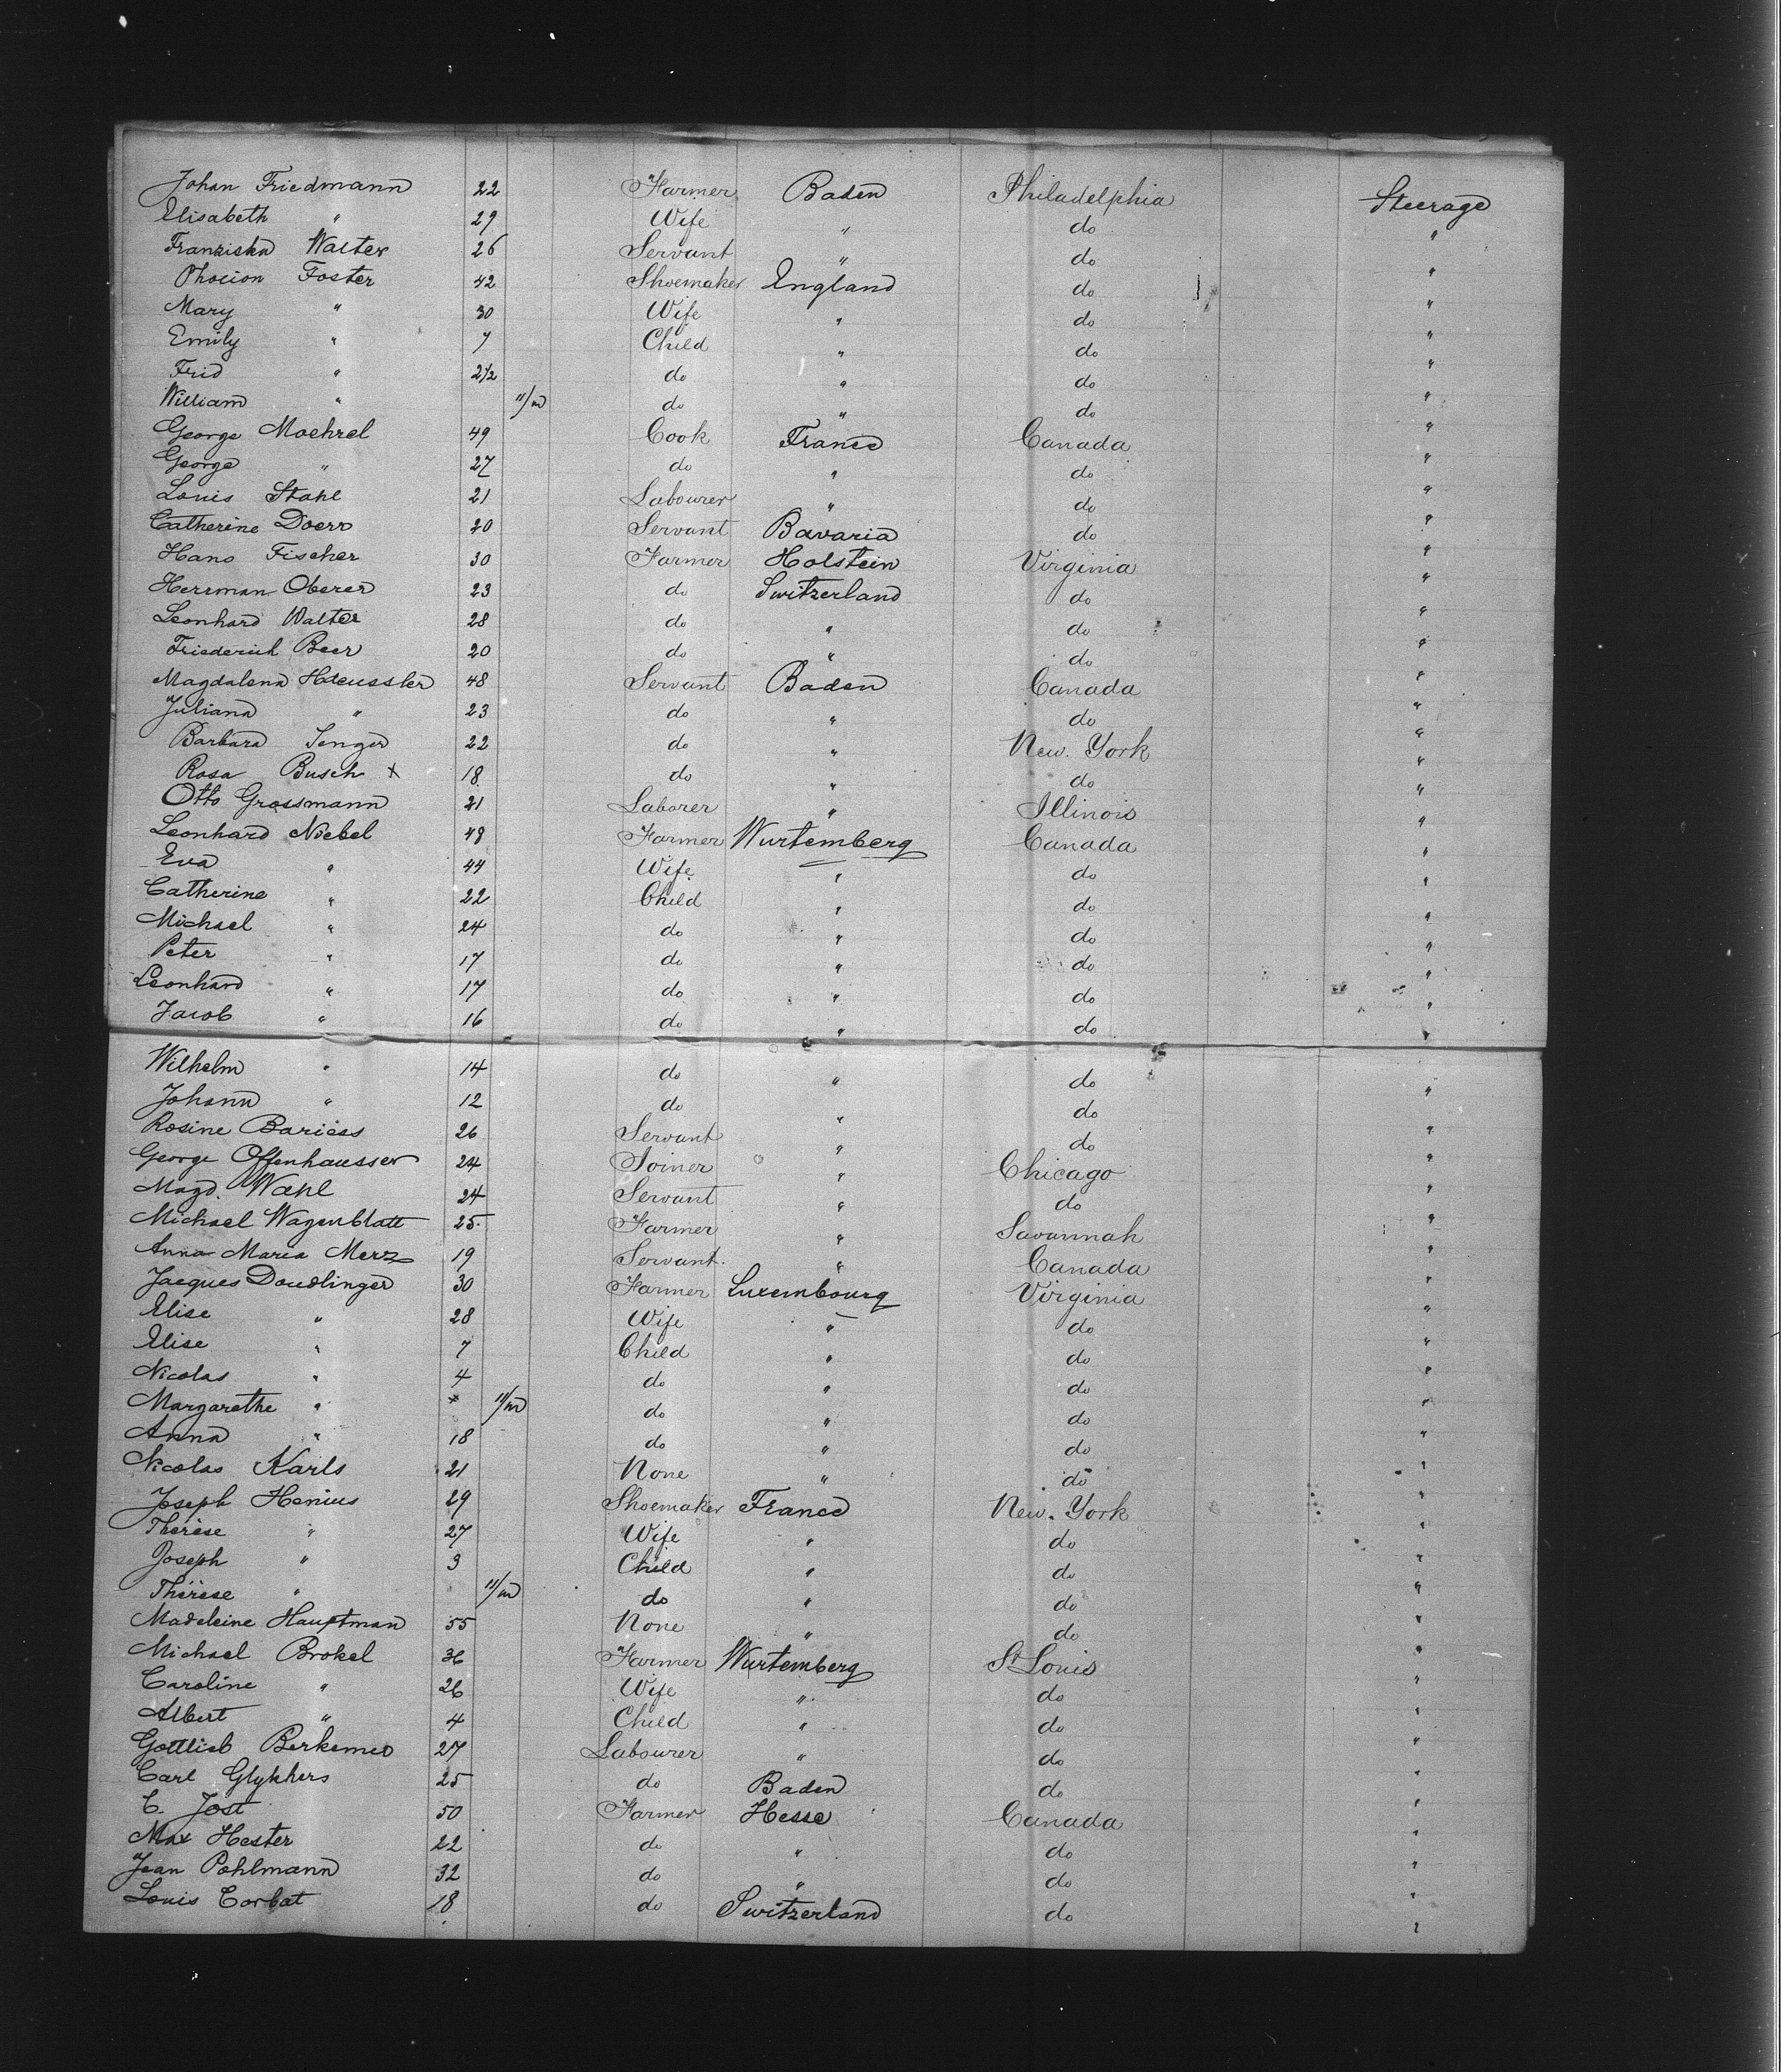 Johan Friedmann 22 Farmer Baden Philadelphia Steerage
Elisabeth " 29 Wife " do "
Franziska Walter 26 Servant " do "
Phocion Foster 42 Shoemaker England do "
Mary " 30 Wife " do "
Emily " 7 Child " do "
Frid " 2 1/2 do " do "
William " 11/m do " do "
George Moehrel 49 Cook France Canada "
George " 27 do " do "
Louis Stahl 21 Labourer " do "
Catherine Doerr 20 Servant Bavaria do "
Hans Fischer 30 Farmer Holstein Virginia "
Herrman Oberer 23 do Switzerland do "
Leonhard Walter 28 do " do "
Friederich Beer 20 do " do "
Magdalena Haeussler 48 Servant Baden Canada "
Juliana " 23 do " do "
Barbara Senger 22 do " New. York "
Rosa Busch x 18 do " do "
Otto Grossmann 21 Laborer " Illinois "
Leonhard Niebel 48 Farmer Wurtemberg Canada "
Eva " 44 Wife " do "
Catherine " 22 Child " do "
Michael " 24 do " do "
Peter " 17 do " do "
Leonhard " 17 do " do "
Jacob " 16 do " do "
Wilhelm " 14 do " do "
Johann " 12 do " do "
Rosine Bariess 26 Servant " do "
George Offenhausser 24 Joiner " Chicago "
Magd. Wahl 24 Servant " do "
Michael Wagenblatt 25 Farmer " Savannah "
Anna Maria Merz 19 Servant. " Canada "
Jacques Doudlinger 30 Farmer Luxembourg Virginia "
Elise " 28 Wife " do "
Elise " 7 Child " do "
Nicolas " 4 do " do "
Margarethe " 11/m do " do "
Anna " 18 do " do "
Nicolas Karls 21 None " do "
Joseph Henius 29 Shoemaker France New. York "
Thérèse " 27 Wife " do "
Joseph " 3 Child " do "
Thérèse " 11/m do " do "
Madeleine Hauptman 55 None " do "
Michael Brokel 36 Farmer Wurtemberg St Louis "
Caroline " 26 Wife " do "
Albert " 4 Child " do "
Gottlieb 27 Labourer " do "
Carl Glykhers 25 do Baden do "
C. Jost 50 Farmer Hesse Canada "
Max Hester 22 do " do "
Jean Pohlmann 32 do " do "
Louis Corbat 18 do Switzerland do "